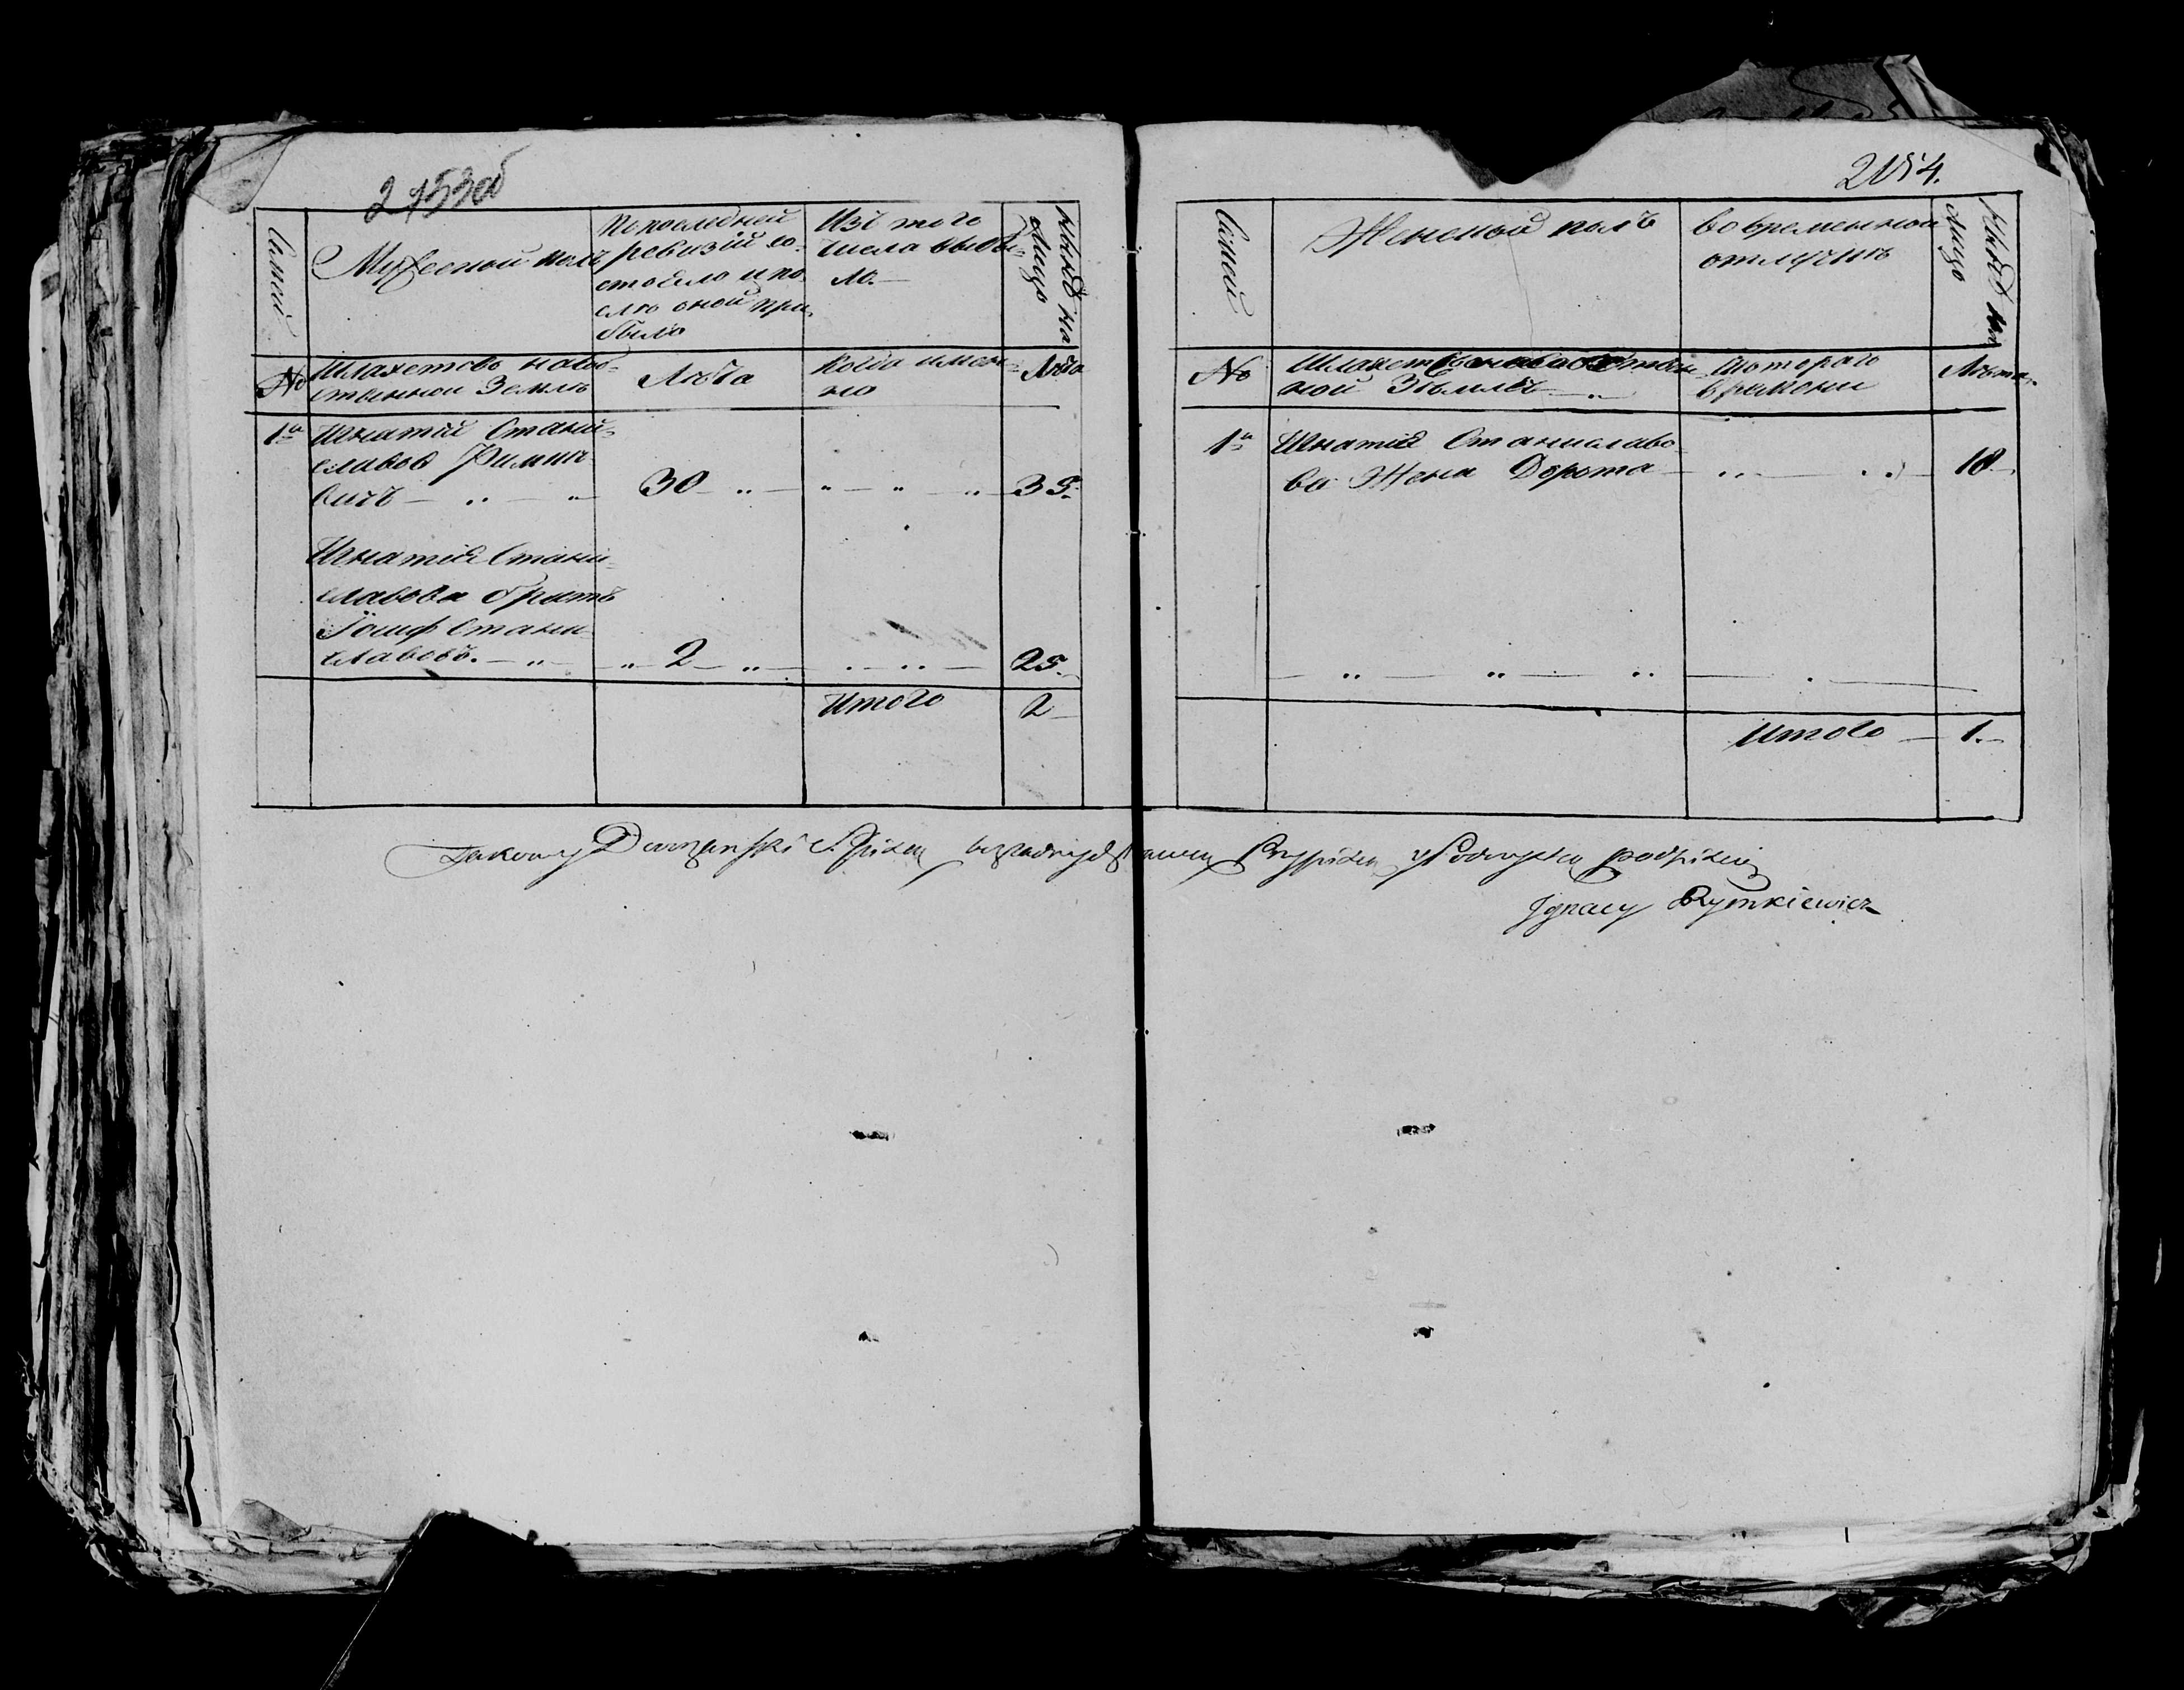 2153об
Семей
Мужеской полъ
По последней
ревизіи со-
стояло и по-
слѣ оной при-
было
Изъ того
числа выбы-
ло.
Ныне на
лицо
№
Шляхетсво на соб-
ственной Землѣ
Лѣта
Когда имен-
но
Лѣта
1й
Игнатій Стани-
славов Римше
вичъ
30
35.
Игнатія Стани-
славова братъ
Іосиф Стани
славовъ.
2
25.
Итого
2
2154.
Семей
Женской полъ
Во временной
отлучкѣ
Ныне на
лицо
№
ной Землѣ
Которого
времени
Лѣта
1й
Игнатія Станиславо
ва Жена Дорота
18
Итого
1.
Takowy
podpisuię
Ignacy Rymkiewicz